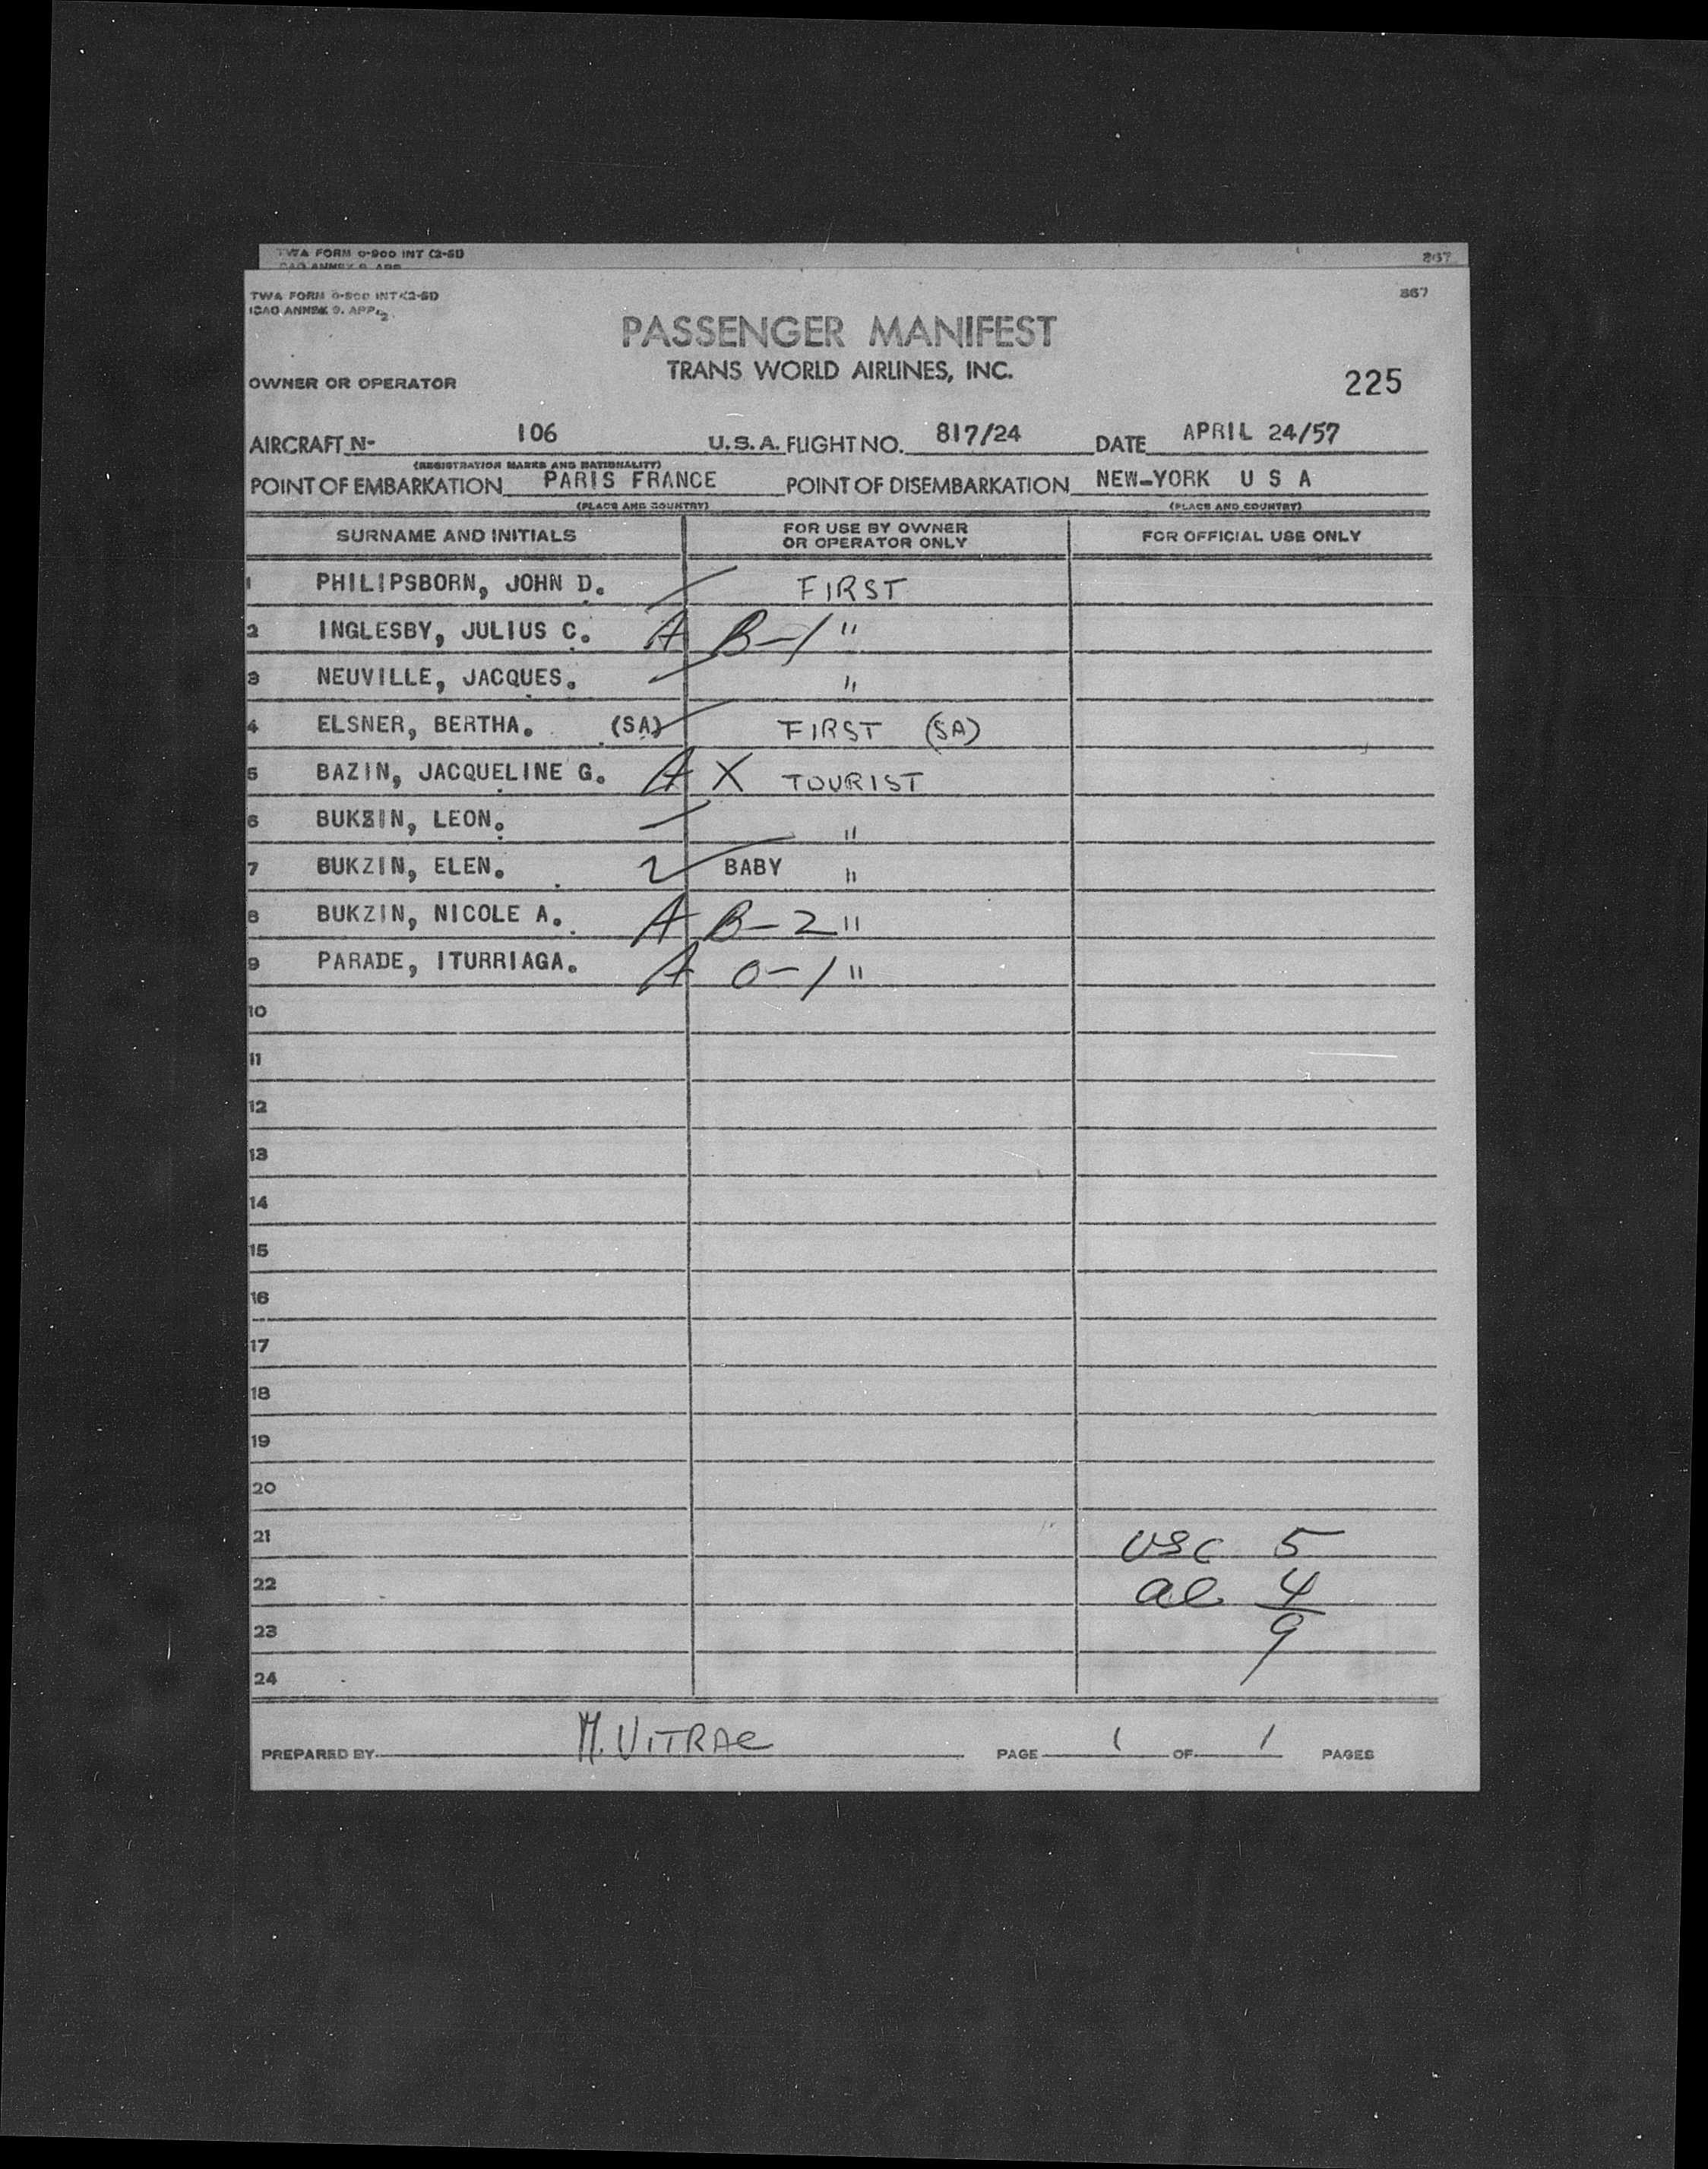 TWA FORM 0-900 INT (2-51)
867
TWA FORM 0-900 INT (2-51)
867
ICAO ANNEX 9. APP. 2
PASSENGER MANIFEST
TRANS WORLD AIRLINES, INC.
OWNER OR OPERATOR
225
AIRCRAFT N- 106 U.S.A. FLIGHT NO. 817/24 DATE APRIL 24/57
(REGISTRATION MARKS AND NATIONALITY)
POINT OF EMBARKATION PARIS FRANCE POINT OF DISEMBARKATION NEW-YORK U S A
(PLACE AND COUNTRY) (PLACE AND COUNTRY)
SURNAME AND INITIALS FOR USE BY OWNER OR OPERATOR ONLY FOR OFFICIAL USE ONLY
1 PHILIPSBORN, JOHN D. FIRST
2 INGLESBY, JULIUS C. A B-1 "
3 NEUVILLE, JACQUES. "
4 ELSNER, BERTHA. (SA) FIRST (SA)
5 BAZIN, JACQUELINE G. A X TOURIST
6 BUKZIN, LEON. "
7 BUKZIN, ELEN. BABY "
8 BUKZIN, NICOLE A. A B-2 "
9 PARADE, ITURRIAGA. A O-1 "
10
11
12
13
14
15
16
17
18
19
20
21 USC 5
22 al 4
23 9
24
PREPARED BY M. VITRAC PAGE 1 OF 1 PAGES